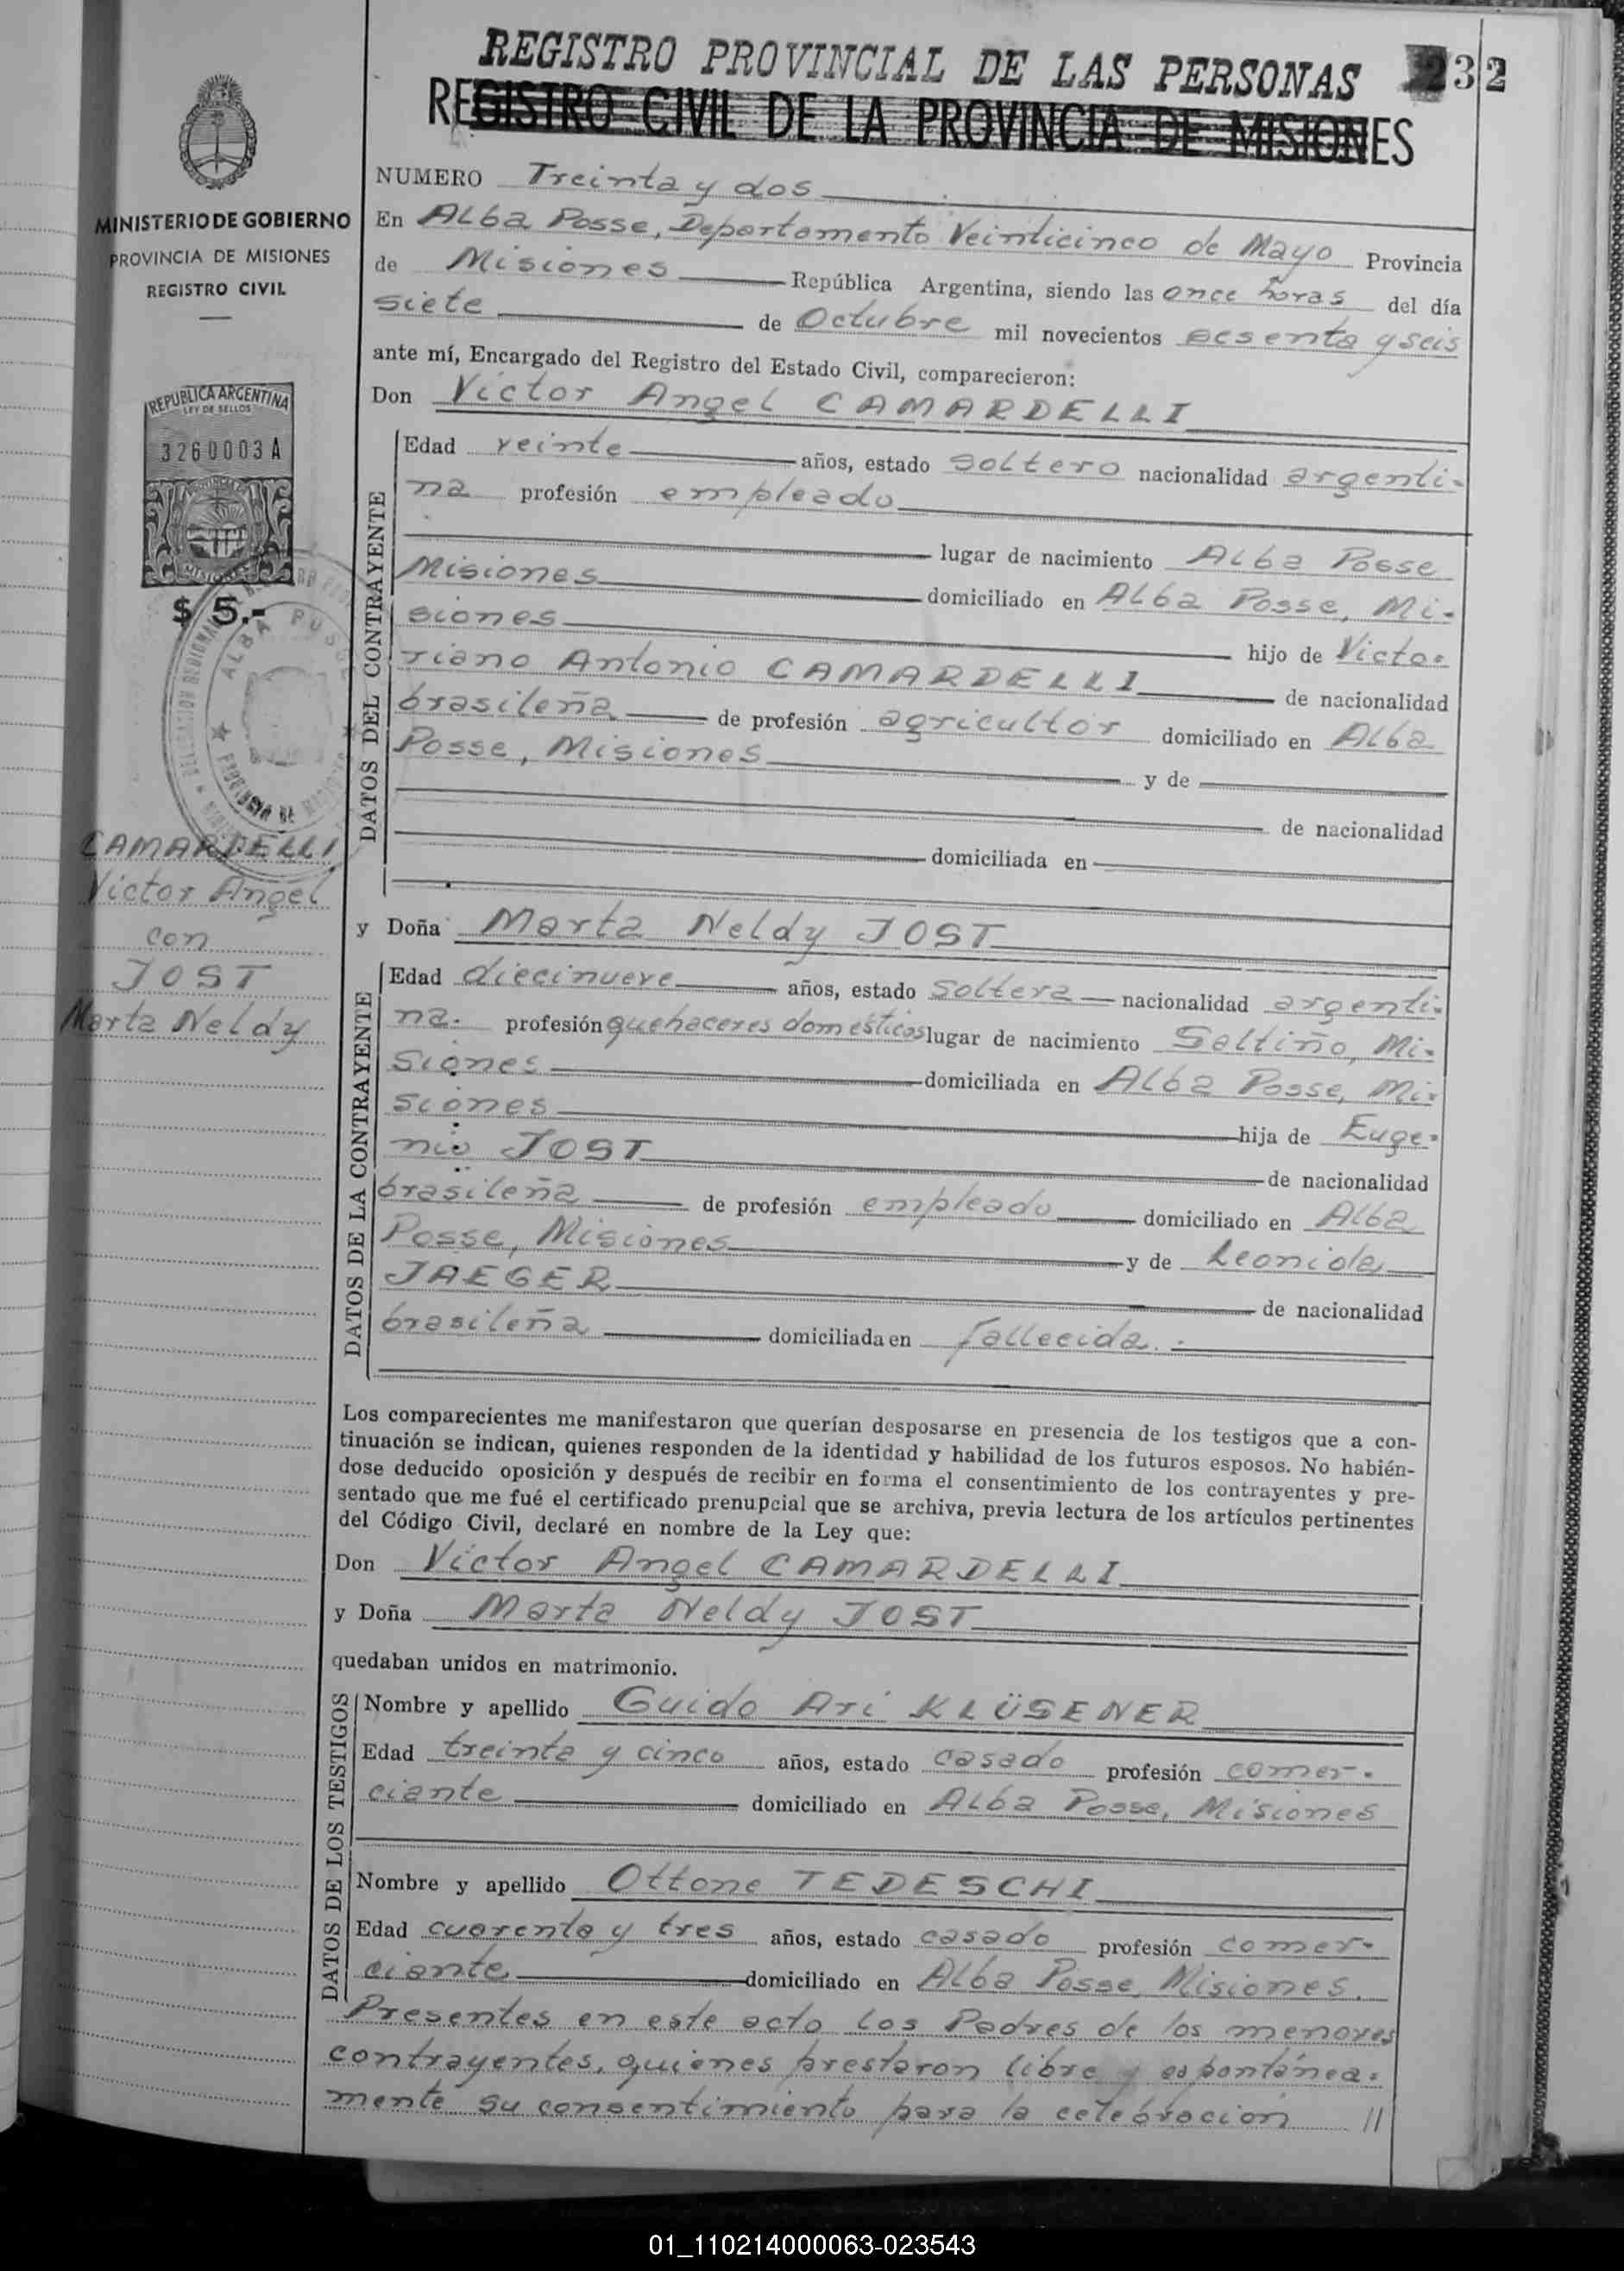 REGISTRO PROVINCIAL DE LAS PERSONAS
232
REGISTRO CIVIL DE LA PROVINCIA DE MISIONES
MINISTERIO DE GOBIERNO
PROVINCIA DE MISIONES
REGISTRO CIVIL
REPUBLICA ARGENTINA
LEY DE SELLOS
3260003 A
MISIONES
$ 5.-
ALBA POSSE
CAMARDELLI
Victor Angel
con
JOST
Marta Neldy
NUMERO Treinta y dos
En Alba Posse, Departamento Veinticinco de Mayo Provincia
de Misiones República Argentina, siendo las once horas del día
siete de Octubre mil novecientos sesenta y seis
ante mí, Encargado del Registro del Estado Civil, comparecieron:
Don Victor Angel CAMARDELLI
DATOS DEL CONTRAYENTE
Edad veinte años, estado soltero nacionalidad argenti-
na profesión empleado
lugar de nacimiento Alba Posse
Misiones domiciliado en Alba Posse, Mi-
siones hijo de Victo-
riano Antonio CAMARDELLI de nacionalidad
brasileña de profesión agricultor domiciliado en Alba
Posse, Misiones y de
de nacionalidad
domiciliada en
y Doña Marta Neldy JOST
DATOS DE LA CONTRAYENTE
Edad diecinueve años, estado soltera nacionalidad argenti-
na. profesión quehaceres domésticos lugar de nacimiento Saltiño, Mi-
siones domiciliada en Alba Posse, Mi-
siones hija de Euge-
nio JOST de nacionalidad
brasileña de profesión empleado domiciliado en Alba
Posse, Misiones y de Leonida
JAEGER de nacionalidad
brasileña domiciliada en fallecida.
Los comparecientes me manifestaron que querían desposarse en presencia de los testigos que a con-
tinuación se indican, quienes responden de la identidad y habilidad de los futuros esposos. No habién-
dose deducido oposición y después de recibir en forma el consentimiento de los contrayentes y pre-
sentado que me fué el certificado prenupcial que se archiva, previa lectura de los artículos pertinentes
del Código Civil, declaré en nombre de la Ley que:
Don Victor Angel CAMARDELLI
y Doña Marta Neldy JOST
quedaban unidos en matrimonio.
DATOS DE LOS TESTIGOS
Nombre y apellido Guido Ari KLÜSENER
Edad treinta y cinco años, estado casado profesión comer-
ciante domiciliado en Alba Posse, Misiones
Nombre y apellido Ottone TEDESCHI
Edad cuarenta y tres años, estado casado profesión comer-
ciante domiciliado en Alba Posse, Misiones.
Presentes en este acto los Padres de los menores
contrayentes, quienes prestaron libre y espontánea-
mente su consentimiento para la celebración //
01_110214000063-023543